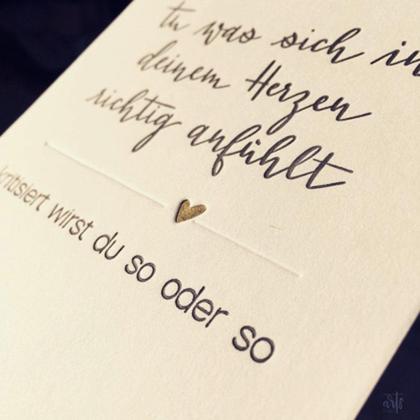 tu was sich in
deinem Herzen
richtig anfühlt
kritisiert wirst du so oder so
arts